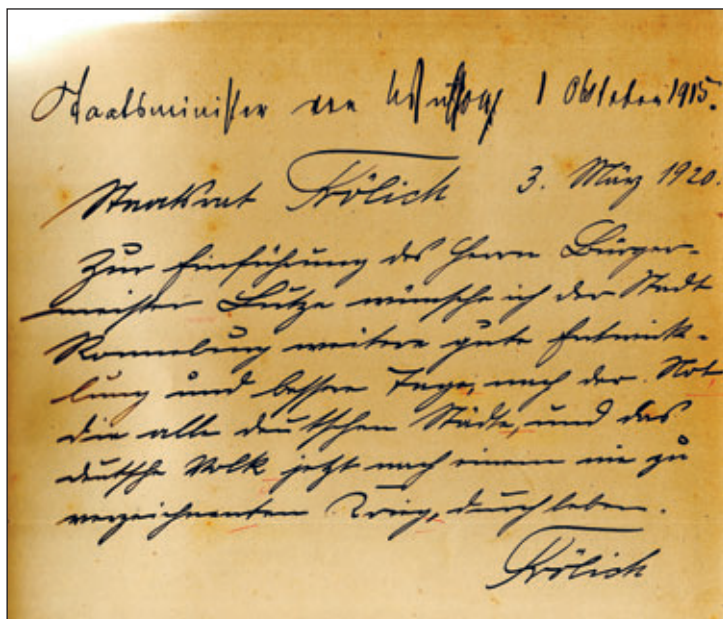 Staatsminister von 1 Oktober 1915.
Staatsrat Frölich 3. März 1920.
Zur Einführung des Herrn Bürger-
meister Lutze wünsche ich der Stadt
Ronneburg weitere gute Entwick-
lung und bessere Tage, nach der Not
die alle deutschen Städte, und das
deutsche Volk jetzt nach einem nie zu
verzeichnenten Krieg, durchleben.
Frölich